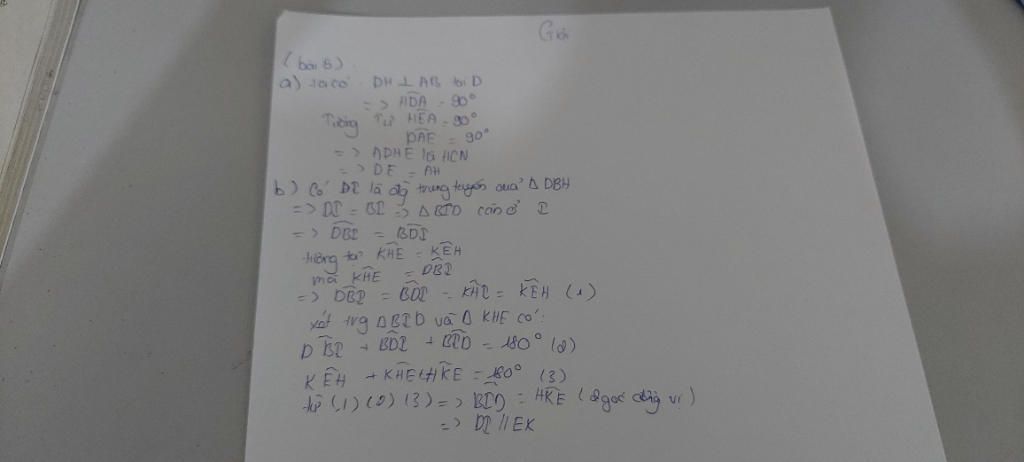 Giải
(bài 8)
a) Ta có DH ⊥ AB tại D
=> HDA = 90°
Tương Tự HEA = 90°
DAE = 90°
=> ADHE là HCN
=> DE = AH
b) Có DI là đg trung tuyến của Δ DBH
=> DI = BI => Δ BID cân ở I
=> DBI = BDI
tương tự KHE = KEH
mà KHE = DBI
=> DBI = BDI = KHI = KEH (1)
xét trg ΔBID và Δ KHE có:
DBI + BDI + BID = 180° (2)
KEH + KHE + HKE = 180° (3)
từ (1) (2) (3) => BID = HKE (2 góc đồng vị)
=> DI // EK